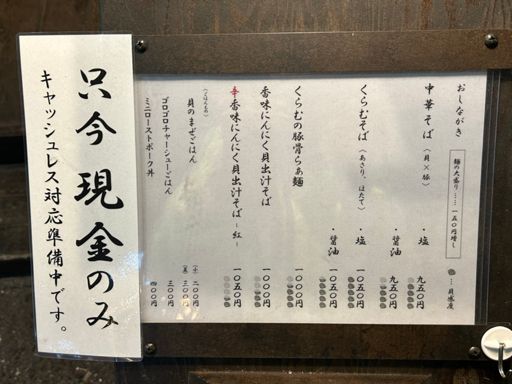 只今 現金のみ
キャッシュレス対応準備中です。
おしながき
麺の大盛り……一五〇円増し
…貝感度
中華そば（貝×豚）
・塩 九五〇円
・醤油 九五〇円
くらむそば（あさり、ほたて）
・塩 一〇五〇円
・醤油 一〇五〇円
くらむの豚骨らぁ麺 一〇〇〇円
香味にんにく貝出汁そば 一〇〇〇円
辛香味にんにく貝出汁そば－紅－ 一〇五〇円
（ごはんもの）
貝のまぜごはん （小）二〇〇円
（並）三〇〇円
ゴロゴロチャーシューごはん 三〇〇円
ミニローストポーク丼 四〇〇円